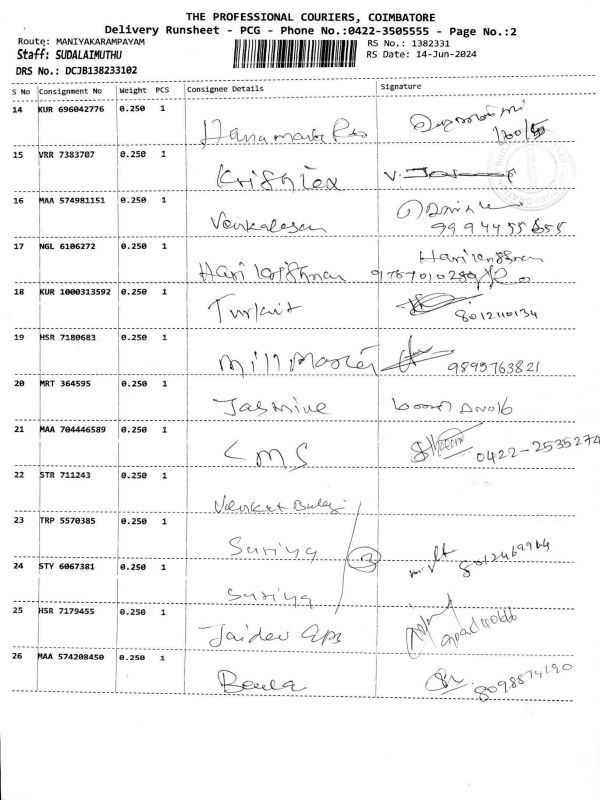 THE PROFESSIONAL COURIERS, COIMBATORE
Delivery Runsheet - PCG - Phone No.:0422-3505555 - Page No.:2
Route: MANIYAKARAMPAYAM RS No.: 1382331
Staff: SUDALAIMUTHU RS Date: 14-Jun-2024
DRS No.: DCJB138233102
S No Consignment No Weight PCS Consignee Details Signature
14 KUR 696042776 0.250 1
15 VRR 7383707 0.250 1 Krishtex
16 MAA 574981151 0.250 1 Venkatesan
9994455655
17 NGL 6106272 0.250 1 Hari Krishnan Harikrishnan
9787010289
18 KUR 1000313592 0.250 1
8012110134
19 HSR 7180683 0.250 1 Mill Master 9895763821
20 MRT 364595 0.250 1 Jasmine
21 MAA 704446589 0.250 1 LMS 0422-2535274
22 STR 711243 0.250 1 Venkat Balaji
23 TRP 5570385 0.250 1 Suriya
24 STY 6067381 0.250 1 Suriya
25 HSR 7179455 0.250 1 Jaidev
26 MAA 574208450 0.250 1 Beula